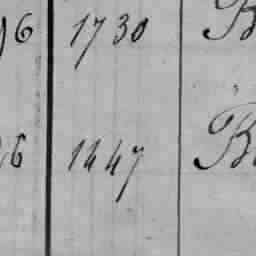 96 1730 B
6 1447 B